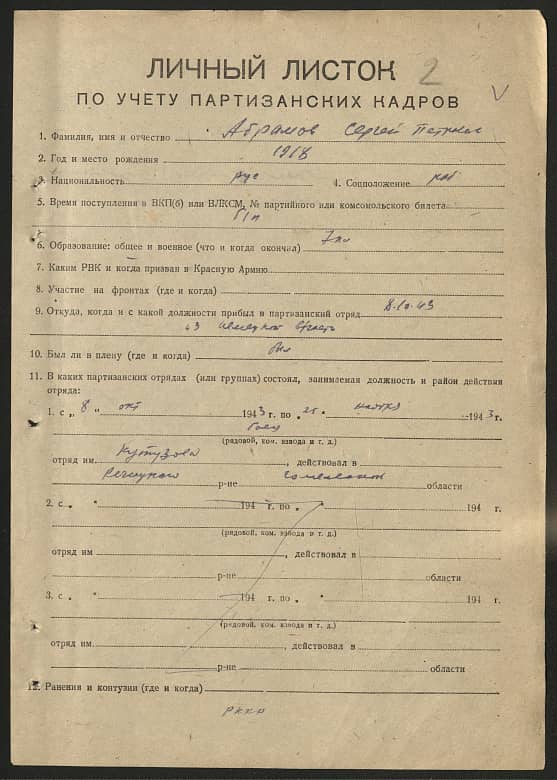 ЛИЧНЫЙ ЛИСТОК 2
ПО УЧЕТУ ПАРТИЗАНСКИХ КАДРОВ
1. Фамилия, имя и отчество Абрамов Сергей
2. Год и место рождения 1918
3. Национальность рус 4. Соцположение раб
5. Время поступления в ВКП(б) или ВЛКСМ, № партийного или комсомольского билета
б/п
6. Образование: общее и военное (что и когда окончал) 7кл
7. Каким РВК и когда призван в Красную Армию
8. Участие на фронтах (где и когда)
9. Откуда, когда и с какой должности прибыл в партизанский отряд 8.10.43
из
10. Был ли в плену (где и когда) был
11. В каких партизанских отрядах (или группах) состоял, занимаемая должность и район действия
отряда:
1. с „ 8 " окт 1943 г. по „ 25 " ноября 1943 г.
боец
(рядовой, ком. взвода и т. д.)
отряд им. Кутузова, действовал в
Речицком р-не Гомельской области
2. с „ " 194 г. по „ " 194 г.
(рядовой, ком. взвода и т. д.)
отряд им , действовал в
р-не области
3. с „ " 194 г. по „ " 194 г.
(рядовой, ком. взвода и т. д.)
отряд им. , действовал в
р-не области
12. Ранения и контузии (где и когда)
РККА